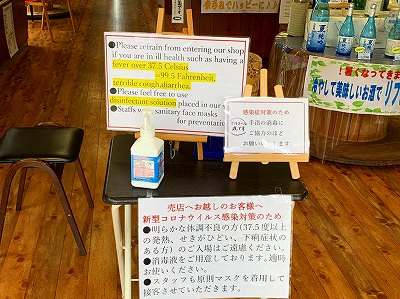 ●Please refrain from entering our shop
if you are in ill health such as having a
fever over 37.5 Celsius
=99.5 Fahrenheit,
terrible cough,diarrhea.
●Please feel free to use
disinfectant solution placed in our
●Staffs wear sanitary face masks
for preventative
感染症対策のため
手指の消毒に
ご協力のほど
お願い
売店へお越しのお客様へ
新型コロナウイルス感染対策のため
●明らかな体調不良の方(37.5度以上
の発熱、せきがひどい、下痢症状の
ある方）のご入場はご遠慮ください。
●消毒液をご用意しております。適時
お使いください。
●スタッフも原則マスクを着用して
接客させていただきます。
冷やして美味しいお酒で